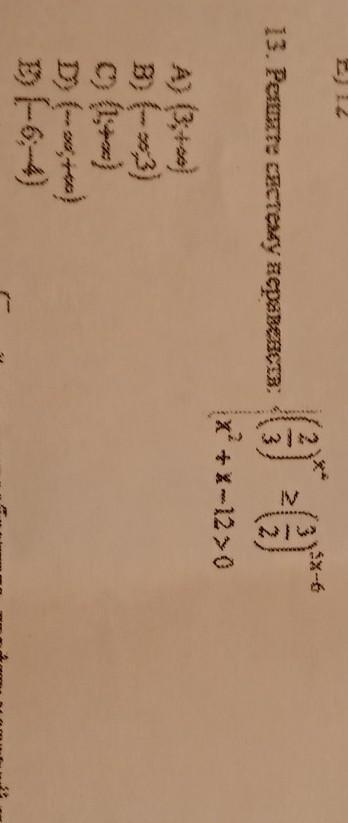 E) 12
13. Решите систему неравенств: { (2/3)^x² ≥ (3/2)^5x-6
x² + x - 12 > 0
A) (3;+∞)
B) (-∞;3)
C) (1;+∞)
D) (-∞;+∞)
E) [-6;-4)